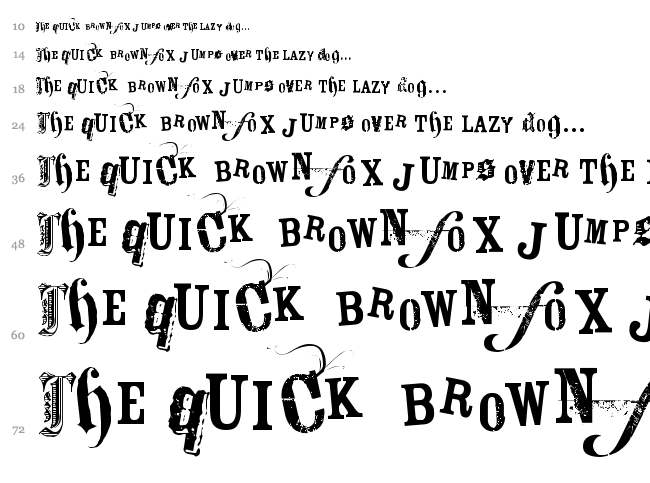 10 The QUICK BROWN fOX JUMPS OVER THE LAZY dog...
14 The QUICK BROWN fOX JUMPS OVER THE LAZY dog...
18 The QUICK BROWN fOX JUMPS OVER THE LAZY dog...
24 The QUICK BROWN fOX JUMPS OVER THE LAZY dog...
36 The QUICK BROWN fOX JUMPS OVER THE
48 The QUICK BROWN fOX JUMPS
60 The QUICK BROWN fOX J
72 The QUICK BROWN f